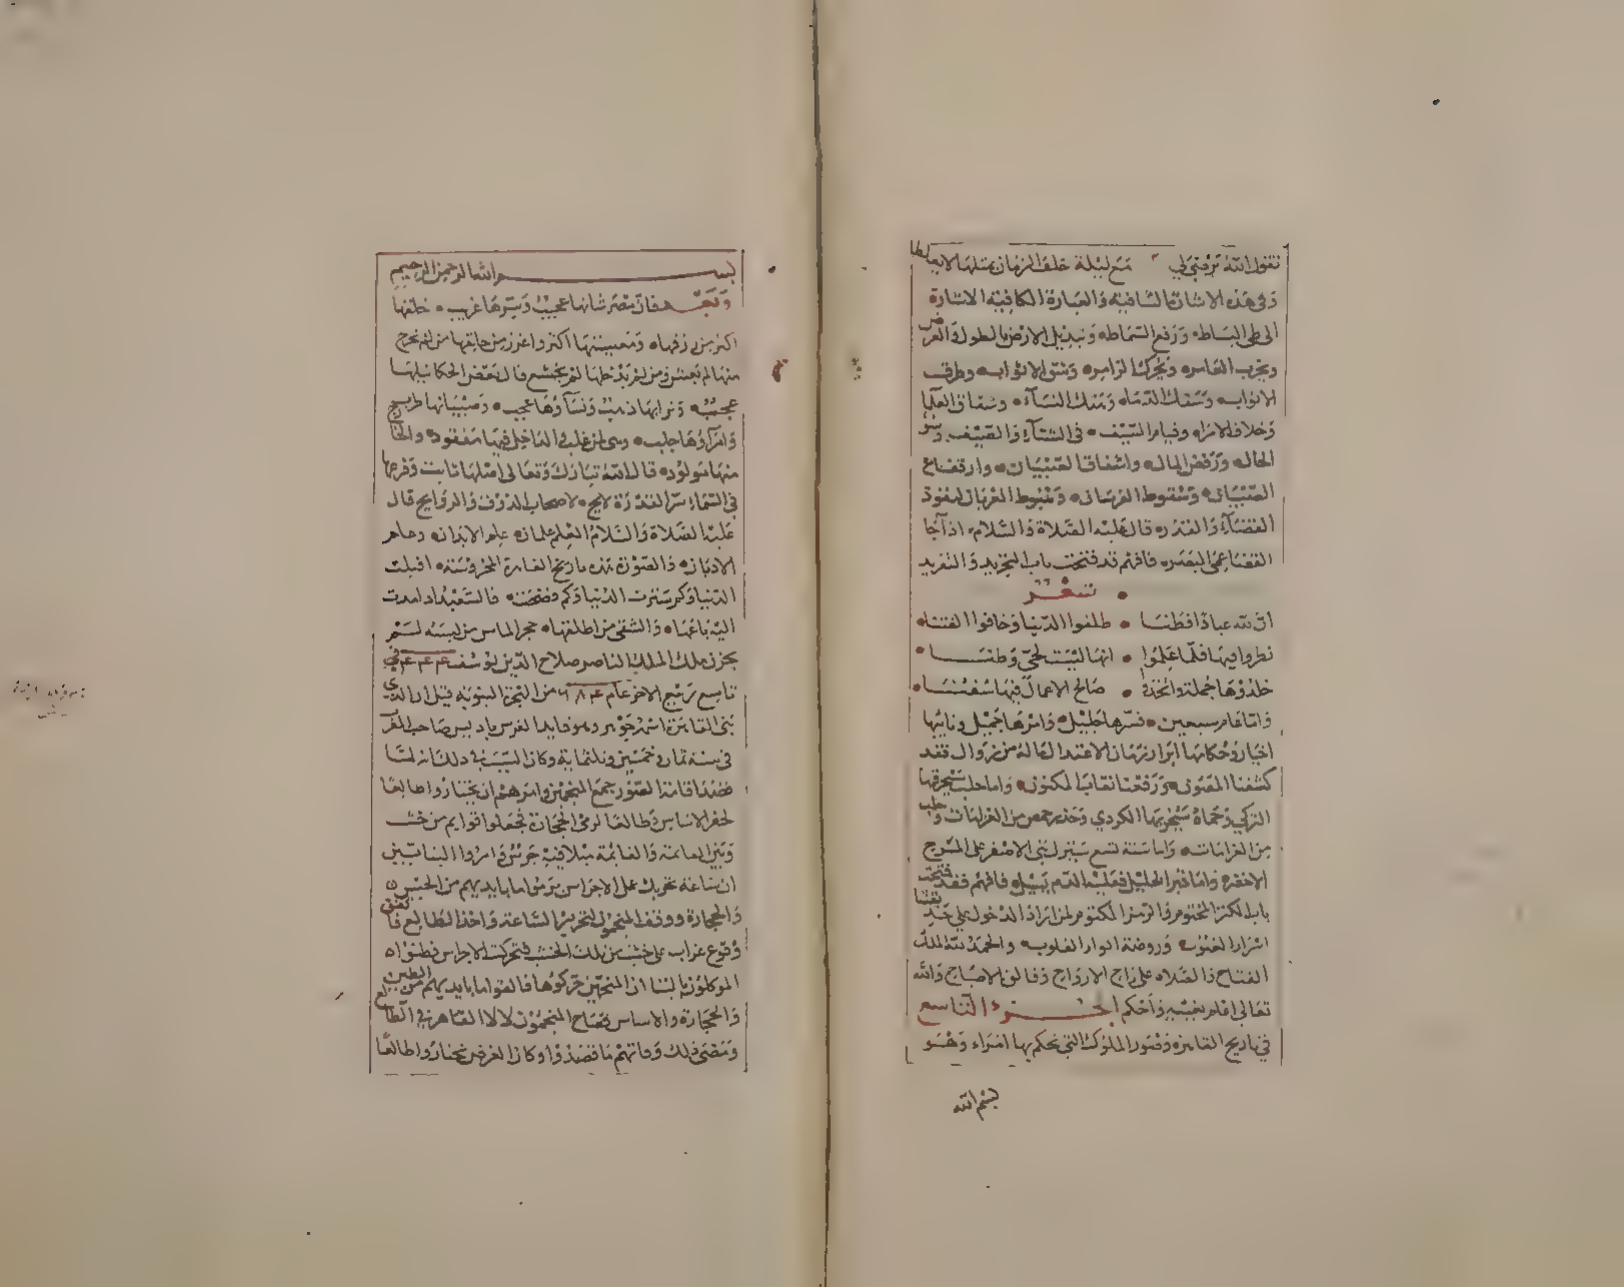 تقول الله يرضى لي مع ليلة خلف الزمان بمثلها لا يغلطا
وفي هذه الاشارة الشافية والعبارة الكافية الاشارة
الى طي البساط ورفع السماط وتبديل الارض بالطول والعرض
الابواب وسفك الدما وهتك النساء وشقاق العلما
وخلاف الامراء وقيام السيف في الشتاء والصيف
الحال ورفض المال واشفاق الصبيان وارتفاع
الصبيان وسقوط الفرسان وهبوط العربان لنفوذ
القضاء والقدر قال عليه الصلاة والسلام اذا جا
القضا عمي البصر فافهم قد فتحت باب التجريد والتفريد
شعر
ان لله عبادا فطنا طلقوا الدنيا وخافوا الفتنا
نظروا فيها فلما علموا انها ليست لحي وطنا
صالح الاعمال فيها سفنا
واما عام سبعين فسرها جليل وامرها جميل
كشفنا المصون ورفعنا نقاب المكنون واما حلب
التركي وحماة يخربها الكردي
الاخضر واما قبر الخليل فعليه الدم يسيل فافهم فقد فتحت
باب الكنز المختوم والرمز المكتوم لمن اراد الدخول على
اسرار الغيوب وروضة انوار القلوب والحمد لله الملك
الفتاح والصلاه على راح الارواح وفالق الاصباح والله
تعالى اعلم بغيبه واحكم الجزء التاسع
في تاريخ القاهرة وقصور الملوك التي تحكم بها امراء وهو
بسم الله
بسم الله الرحمن الرحيم
وبعد فان مصر شانها عجيب وسرها غريب خلقها
اكثر من رزقها ومعيشتها اكثر واغزر من خلقها من لم يخرج
منها لم يعش ومن لم يدخلها لم يخشع قال بعض الحكما نيلها
عجب وترابها ذهب ونساؤها عجب وصبيانها طرب
وامراؤها جلب وهي لمن غلب الداخل فيها مفقود والخارج
منها مولود قال الله تبارك وتعالى اصلها ثابت وفرعها
في السماء سر القدرة لايح لاصحاب الذوق والروايح قال
عليه الصلاة والسلام العلم علمان علم الابدان وعلم
الاديان والصورة هذه تاريخ القاهرة المحروسة اقبلت
الدنيا وكم سترت الدنيا وكم فضحت فالسعيد اذا مدت
اليه باعها والشقي من اطلقها حجر الماس من لبسه لستم
يحزن ملك الملك الناصر صلاح الدين يوسف
تاسع ربيع الاخر عام من الهجرة النبوية قيل ان الذي
بنى القاهرة اسمه جوهر وهو قايد المعز بن باديس صاحب الغرب
في سنة ثمان وخمسين وثلثماية وكان السبب في ذلك انه لما
قصد اقامة السور جمع المنجمين وامرهم ان يختاروا طالعا
لحفر الاساس وطالعا لرمي الحجارة فجعلوا قوايم من خشب
وبين القائمة والقائمة جرس وامروا البنايين
ان ساعة تحريك عمل الاجراس يرموا ما بايديهم من الجبس
والحجارة ووقف المنجمون لتحرير الساعة واخذ الطالع فاتفق
وقوع غراب على خشبة من تلك الخشب فتحركت الاجراس فظنوا
الموكلون بالبنا ان المنجمين حركوها فالقوا ما بايديهم من الطين
والحجارة والاساس فصاح المنجمون لا لا القاهر في الطالع
ومضى ذلك وفاتهم ما قصدوا وكان الغرض يختاروا طالعا